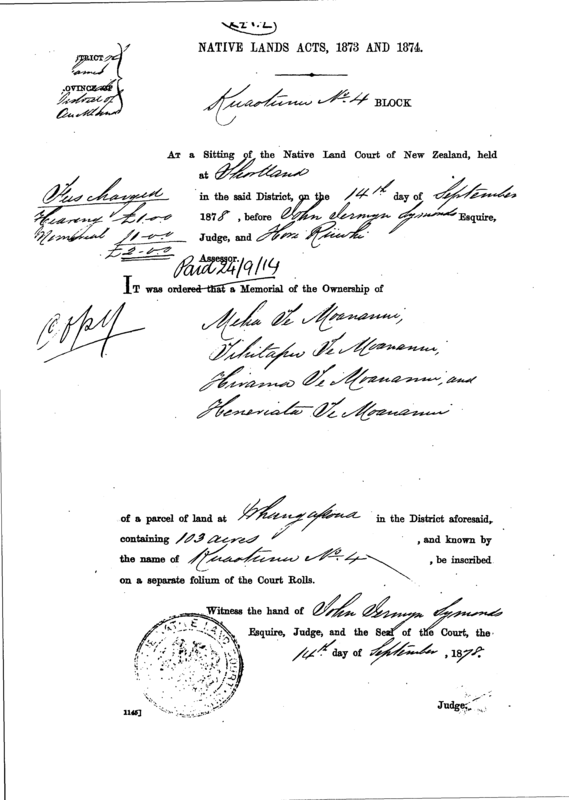 NATIVE LANDS ACTS, 1873 AND 1874.
Kuaotunu No. 4 BLOCK
AT a Sitting of the Native Land Court of New Zealand, held
at Shortland
in the said District, on the 14th day of September
1878, before John Jermyn Symonds Esquire,
Judge, and Hori Riwhi
Assessor.
Fees charged
Hearing £1.0.0
Memorial £1.0.0
£2.0.0
Paid 24/9/14
IT was ordered that a Memorial of the Ownership of
Copy
Meha Te Moananui,
Tihitapu Te Moananui,
Hirama Te Moananui, and
Heneriata Te Moananui
of a parcel of land at Whangapoua in the District aforesaid,
containing 103 acres, and known by
the name of Kuaotunu No. 4, be inscribed
on a separate folium of the Court Rolls.
Witness the hand of John Jermyn Symonds
Esquire, Judge, and the Seal of the Court, the
14th day of September, 1878.
NATIVE LAND COURT
Judge.
1145]